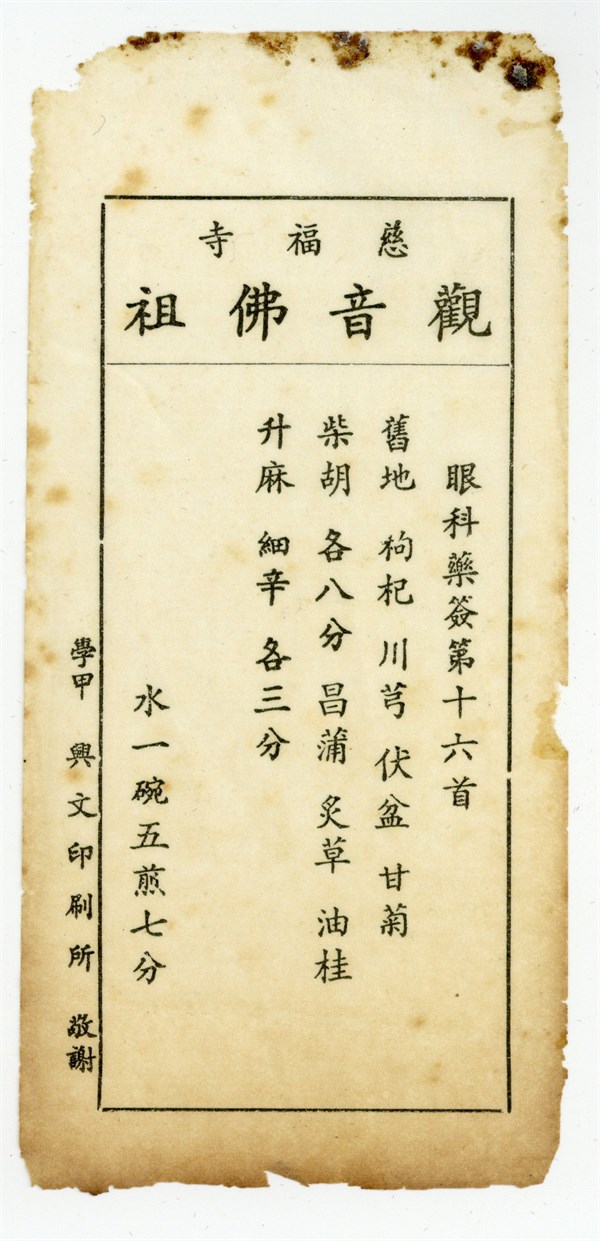 慈福寺
觀音佛祖
眼科藥簽第十六首
舊地 狗杞 川芎 伏盆 甘菊
柴胡 各八分 昌蒲 炙草 油桂
升麻 細辛 各三分
水一碗五煎七分
學甲 興文印刷所 敬謝